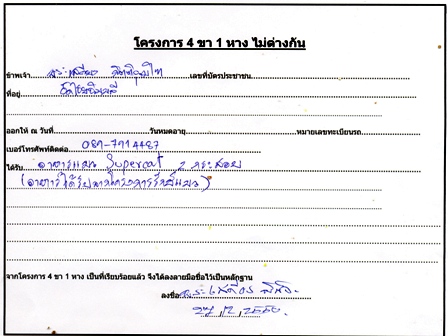 โครงการ 4 ขา 1 หาง ไม่ต่างกัน
ข้าพเจ้า พระเสถียร เลขที่บัตรประชาชน
ที่อยู่
ออกให้ ณ วันที่ วันหมดอายุ หมายเลขทะเบียนรถ
เบอร์โทรศัพท์ติดต่อ 089-7914487
ได้รับ อาหารแมว Supercat 2 กระสอบ
(อาหารได้รับจากโครงการรักษ์แมว)
จากโครงการ 4 ขา 1 หาง เป็นที่เรียบร้อยแล้ว จึงได้ลงลายมือชื่อไว้เป็นหลักฐาน
ลงชื่อ พระเสถียร
27/2/2556